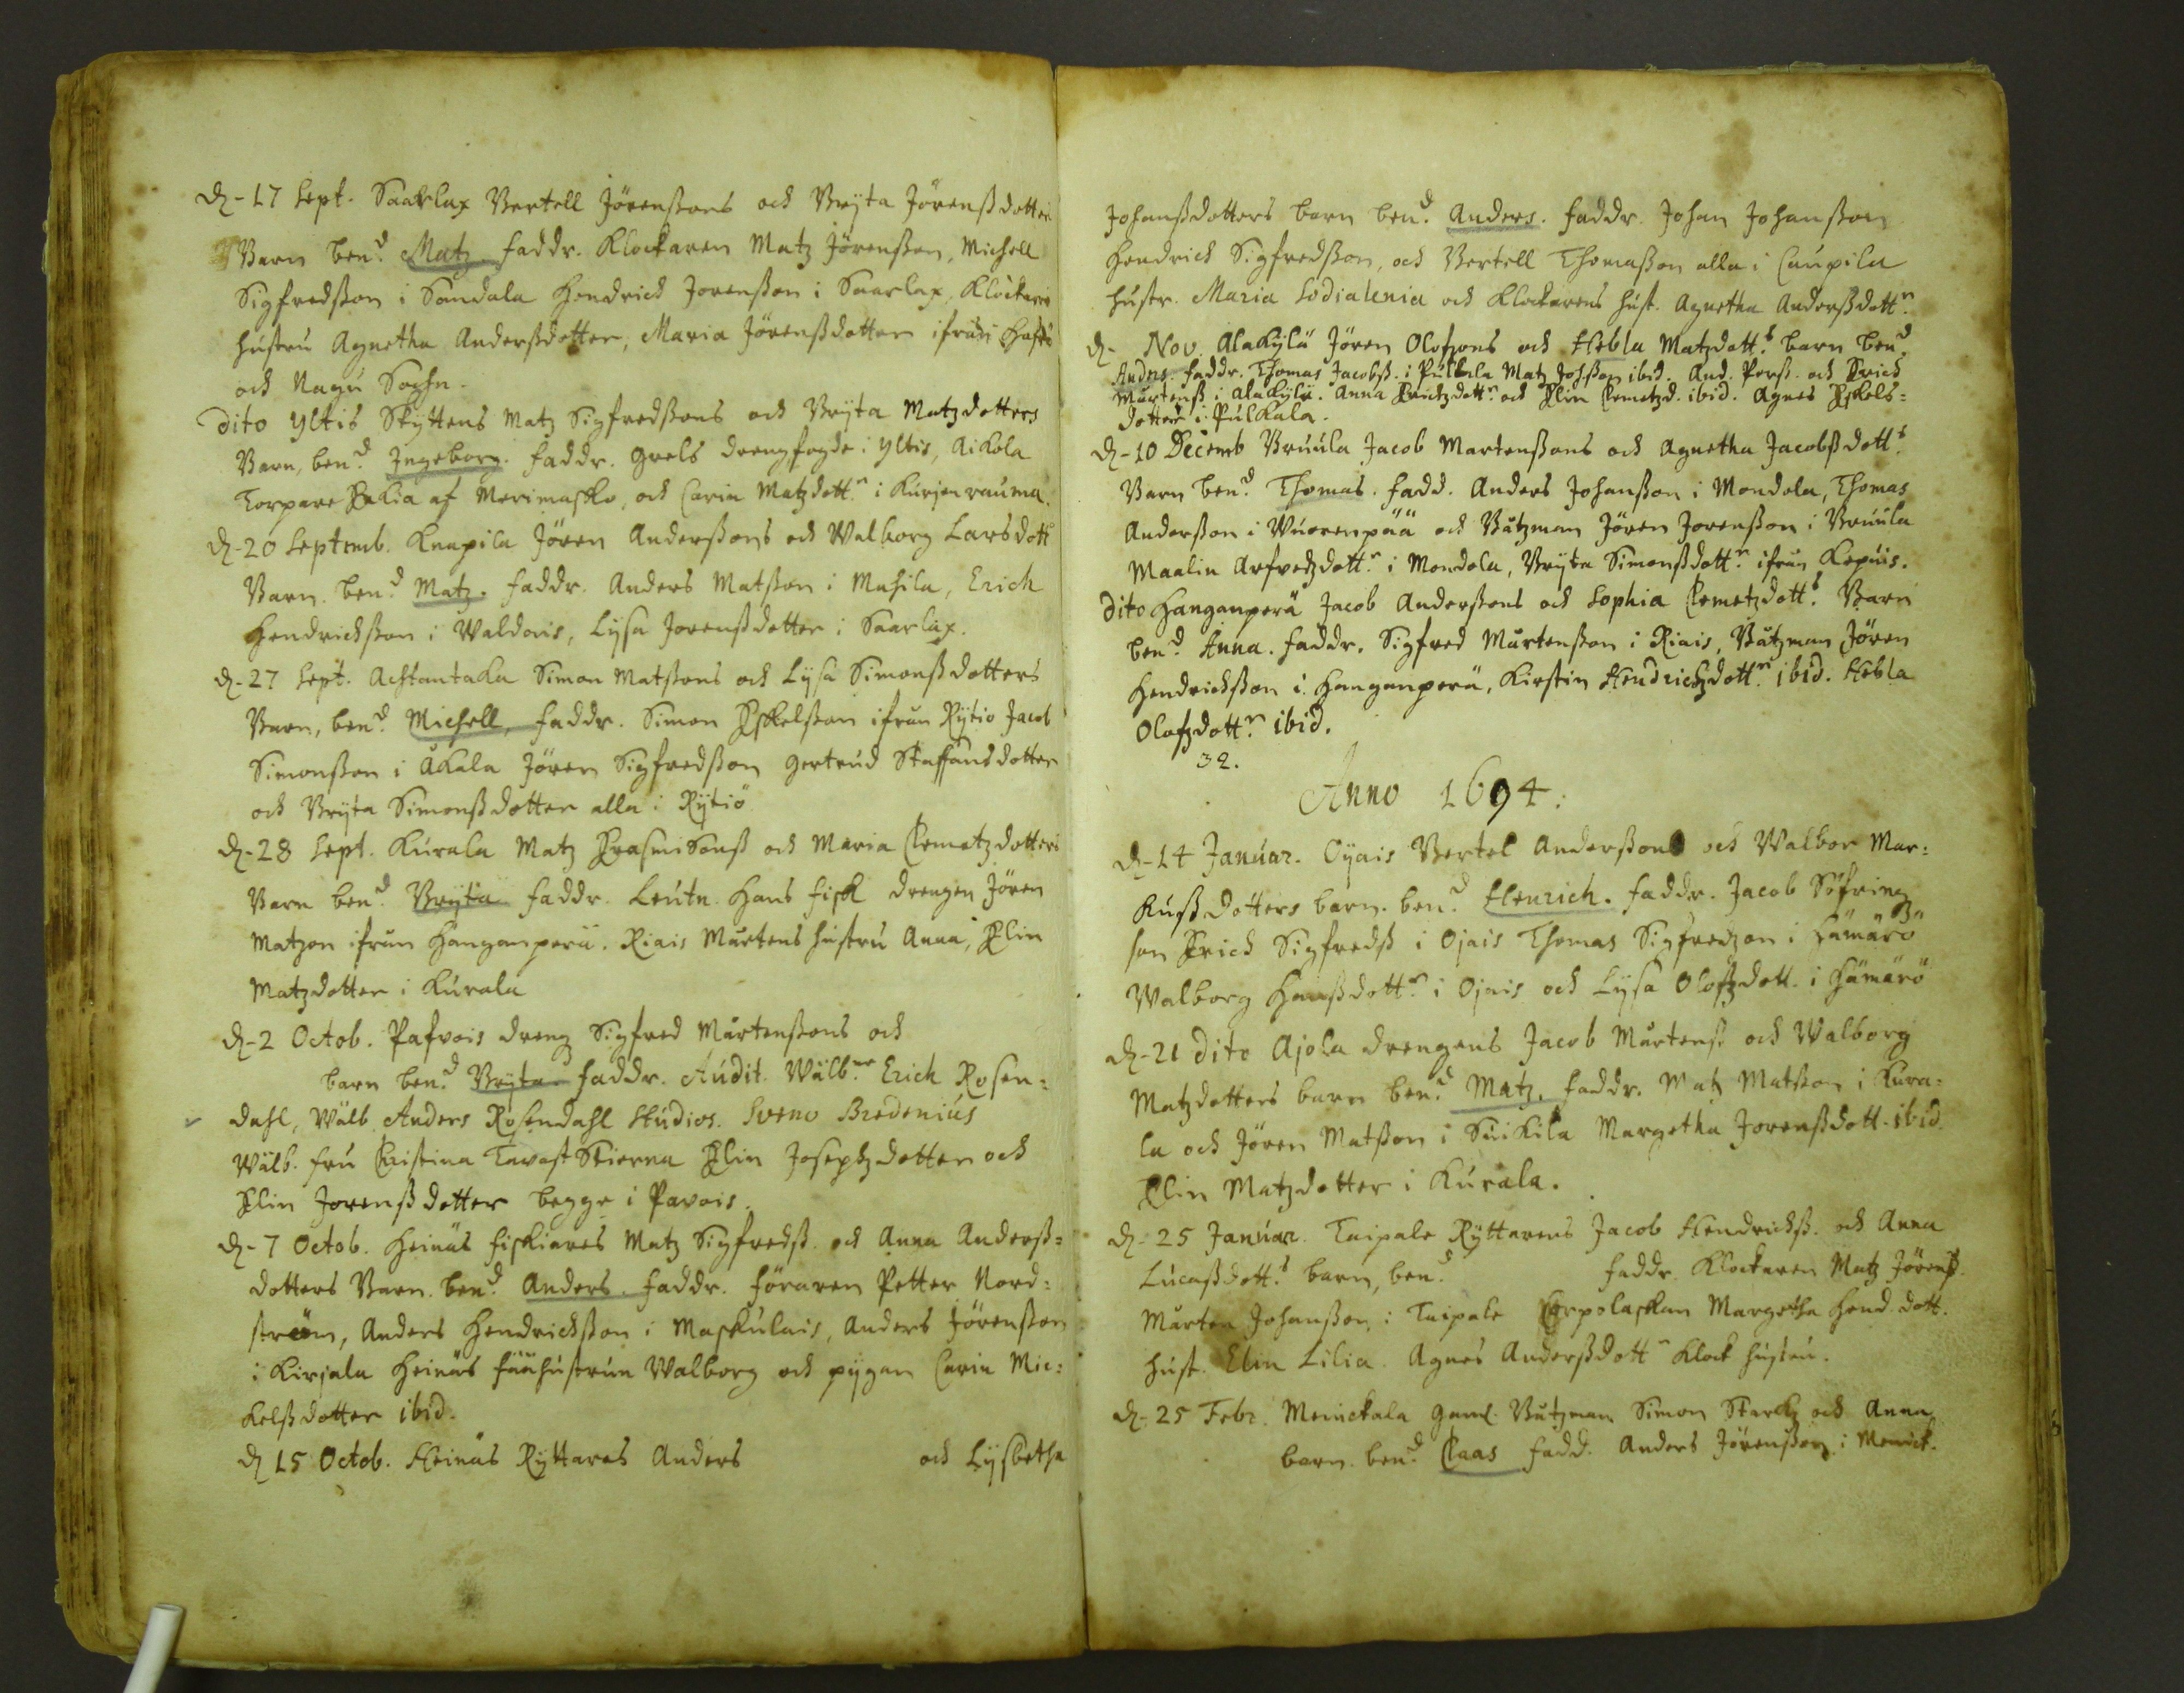 d. 17 Sept. Saarlax Bertell Jörenßons och Bryta Jörenßdotters
Barn ben.d Matz. faddr. Klockaren Matz Jörenßon, Michell
Sigfredßon i Sandala Hendrick Jorenßon i Saarlax, Klockare
hustru Agnetha Anderßdotter, Maria Jörenßdotter ifrån
och Nagu Sochn.
Dito Yltis Skyttens Matz Sigfredßons och Bryta Matzdotters
Barn, ben.d Ingeborg. faddr. Grels drengfogde i Yltis, Aikola
Torpare af Merimasko, och Carin Matzdott.r i Kurjenrauma.
d. 20 Septemb. Knapila Jören Anderßons och Walborg Larsdott
Barn. ben.d Matz. faddr. Anders Matßon i Masila, Erich
Hendrickßon i Waldois, Lysa Jorenßdotter i Saarlax.
d. 27 Sept. Achtantaka Simon Matßons och Lysa Simonßdotters
Barn, ben.d Michell, faddr. Simon Eskelßon ifrån Rytiö Jacob
Simonßon i Akala Jören Sigfredßon Gertrud Staffansdotter
och Bryta Simonßdotter alla i Rytiö
d. 28 Sept. Kurala Matz Erasmisonß och Maria Clemetzdotters
Barn ben.d Bryta faddr. Leutn. Hans Fisk drengen Jören
Matzon ifrån Hanganperä. Riais Mårtens hustru Anna, Elin
Matzdotter i Kurala
d. 2 Octob. Pafvois dreng Sigfred Mårtenßons och
barn ben.d Bryta faddr. Audit. Wälb.ne Erich Rosen=
dahl, Wälb. Anders Rosendahl Studios. Sveno Bredenius
Wälb. fru Christina Tavast Stierna Elin Josephzdotter och
Elin Jorenßdotter begge i Pavois.
d. 7 Octob. Heinäs fiskiares Matz Sigfredß. och Anna Anderß=
dotters Barn. ben.d Anders. faddr. föraren Petter Nord=
ström, Anders Hendrickßon i Maskulais, Anders Jörenßon
i Kirjala Heinäs fäähustrun Walborg och pygan Carin Mic=
kelßdotter ibid.
d 15 Octob. Heinäs Ryttares Anders och Lysbetha
Johanßdotters barn ben.d Anders. faddr. Johan Johanßon
Hendrich Sigfredßon, och Bertell Thomaßon alla i Caupila
hustr. Maria Sodialenia och Klockarens hust. Agnetha Anderßdott.r
d. Nov. Alakylä Jören Olofzons och Hebla Matzdott.s barn ben.d
Andrs. faddr. Thomas Jacobß. i Pulkala Matz Johßon ibid. And. Perß. och Erich
Mårtenß i Alakylä. Anna Erichzdott.r och Elin Clemetzd. ibid. Agnes Eskels=
dotter i Pulkala.
d. 10 Decemb Bruula Jacob Martenßons och Agnetha Jacobßdott.s
Barn ben.d Thomas. fadd. Anders Johanßon i Mondola, Thomas
Anderßon i Wuorenpää och Båtzman Jören Jorenßon i Bruula
Maalin Arfvedzdott.r i Mondola, Bryta Simonßdott.r ifrån Kopuis.
Dito Hanganperä Jacob Anderßons och Sophia Clemetzdott.s Barn
ben.d Anna. faddr. Sigfred Mårtenßon i Riais, Båtzman Jören
Hendrickßon i Hanganperä, Kirstin Hendrichzdott.r ibid. Hebla
Olofzdott.r ibid.
32.
Anno 1694.
d. 14 Januar. Oyais Bertel Anderßons och Walbor Mar=
kußdotters barn. ben.d Henrich. faddr. Jacob Söfring
son Erich Sigfredß i Ojais Thomas Sigfredzon i Hämärö
Walborg Hanßdott.r i Ojais och Lysa Olofzdott. i Hämärö
d. 21 dito Ajola drengens Jacob Mårtenß och Walborg
Matzdotters barn ben.d Matz. faddr. Matz Matßon i Kura=
la och Jören Matßon i Suikila Margetha Jorenßdott. ibid
Elin Matzdotter i Kurala.
d. 25 Januar. Taipale Ryttarens Jacob Hendrickß. och Anna
Lucaßdott.s barn, ben.d faddr. Klockaren Matz Jörenß.
Mårten Johanßon i Taipale Corpolaskan Margetha Hend. dott.
hust. Elin Lilia. Agnes Anderßdott.r Klock hustru.
d. 25 Febr. Menickala gaml. Båtzman Simon Starck och Anna
barn. ben.d Claas fadd. Anders Jörenßon i Menick.